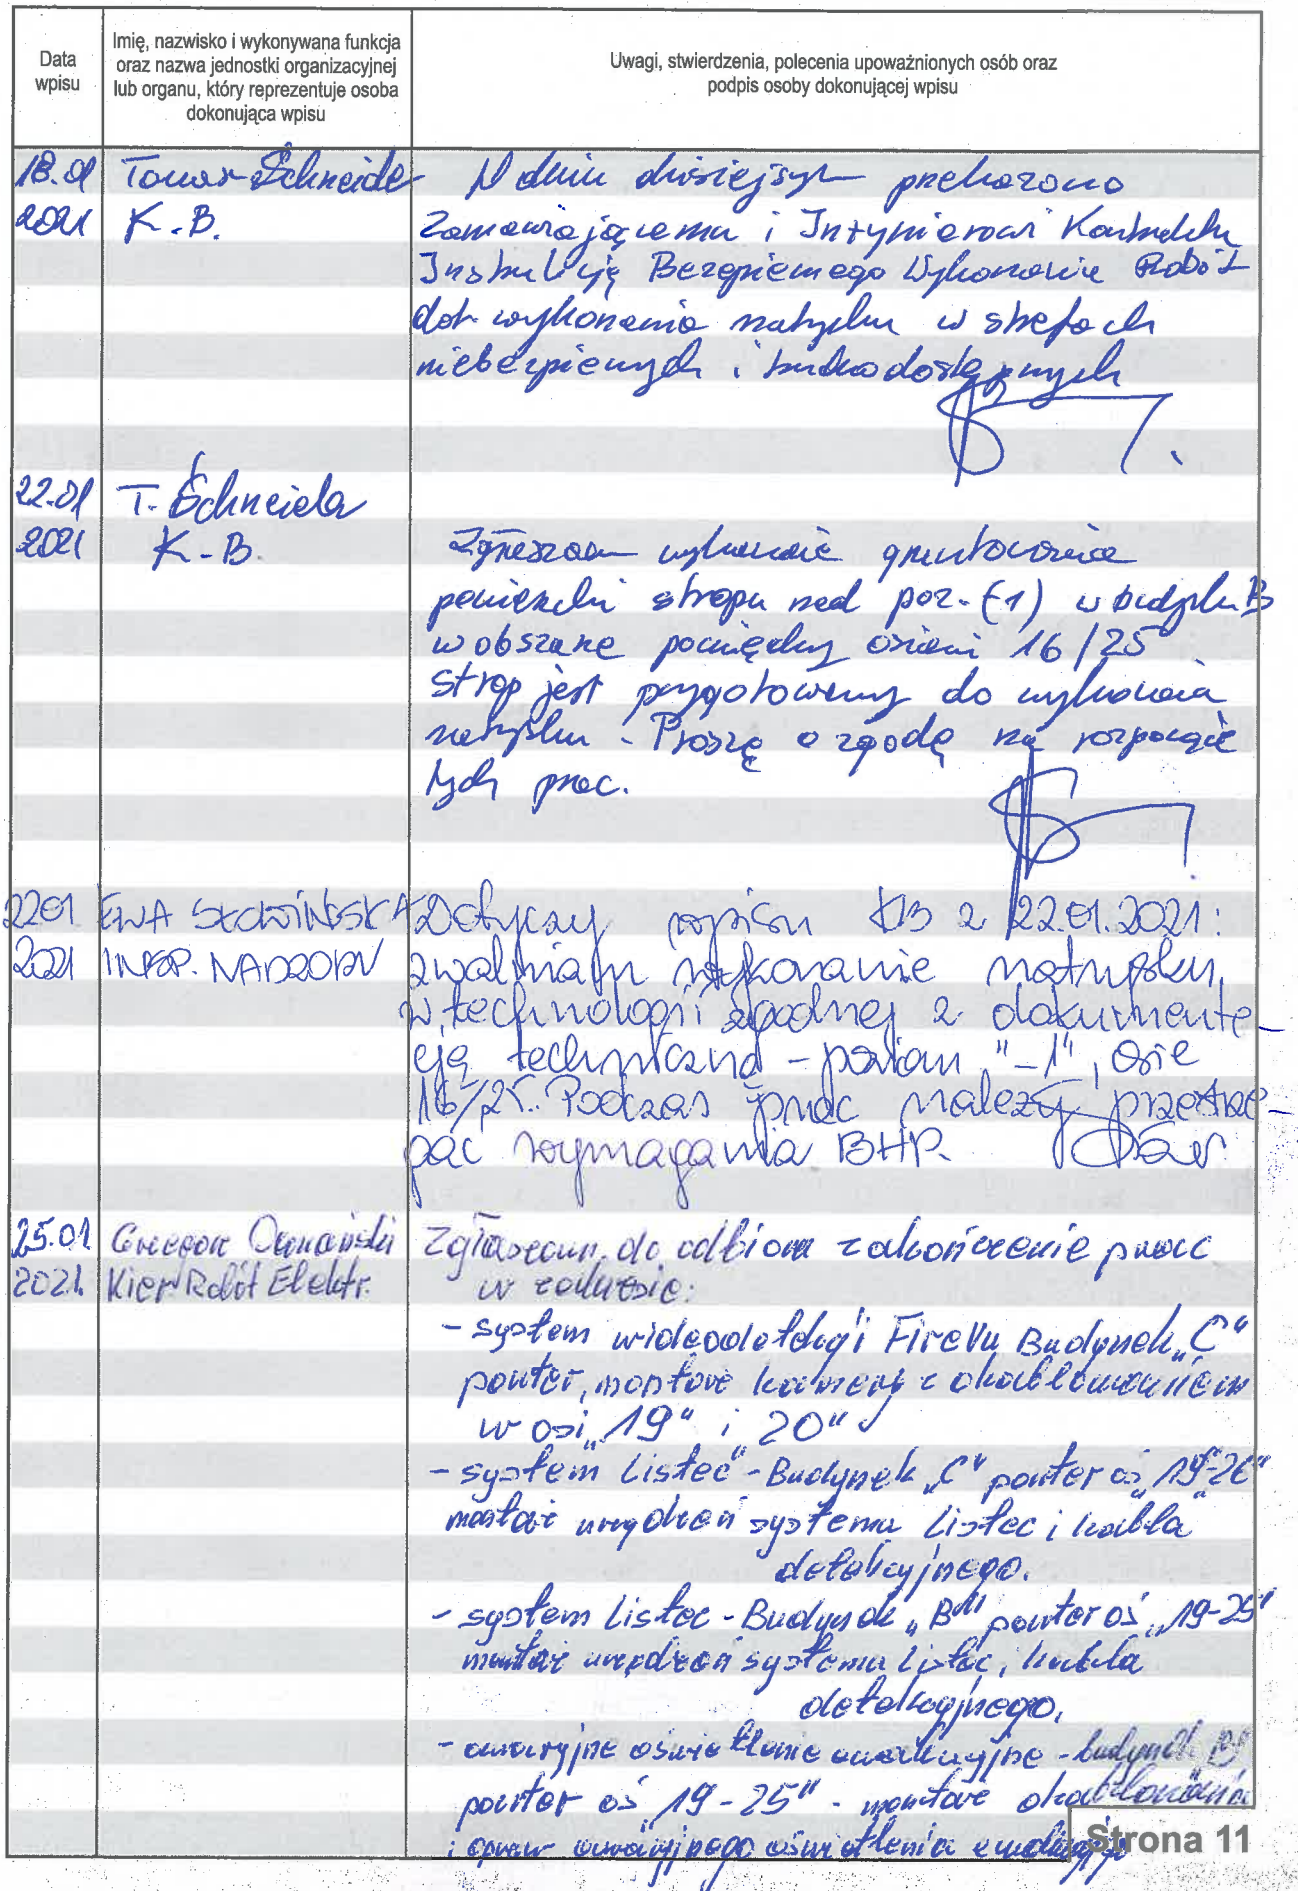 Data
wpisu
Imię, nazwisko i wykonywana funkcja
oraz nazwa jednostki organizacyjnej
lub organu, który reprezentuje osoba
dokonująca wpisu
Uwagi, stwierdzenia, polecenia upoważnionych osób oraz
podpis osoby dokonującej wpisu
18.01 Tomasz Schneider W dniu dzisiejszym przekazano
2021 K.B. Zamawiającemu i Inżynierowi Kontraktu
Instrukcję Bezpiecznego Wykonania Robót
dot. wykonania natrysku w strefach
niebezpiecznych i trudnodostępnych
22.01 T. Schneider
2021 K-B. Zgłaszam wykonanie gruntowania
powierzchni stropu nad poz. (-1) w budynku B
w obszarze pomiędzy osiami 16/25
strop jest przygotowany do wykonania
natrysku - Proszę o zgodę na rozpoczęcie
tych prac.
2201 EWA SŁOWIŃSKA Dotyczy wpisu KB z 22.01.2021:
2021 INSP. NADZORU zwalniam wykonanie natrysku,
w technologii zgodnej z dokumenta-
cją techniczną - poziom "-1", osie
16/25. Podczas prac należy przestrze-
gać wymagania BHP.
25.01 Grzegorz Zgłaszam do odbioru zakończenie prac
2021. Kier Robót Elektr. w zakresie:
- system wideodetekcji FireVu Budynek „C"
parter, montaż kamery z okablowaniem
w osi „19" i 20"
- system Listec - Budynek „C" parter oś „19-26"
montaż urządzeń systemu Listec i kabla
detekcyjnego.
- system Listec - Budynek „B" parter oś „19-25"
montaż urządzeń systemu Listec, kabla
detekcyjnego.
- awaryjne oświetlenie ewakuacyjne - budynek B
parter oś „19-25" - montaż okablowania
i opraw awaryjnego oświetlenia
Strona 11